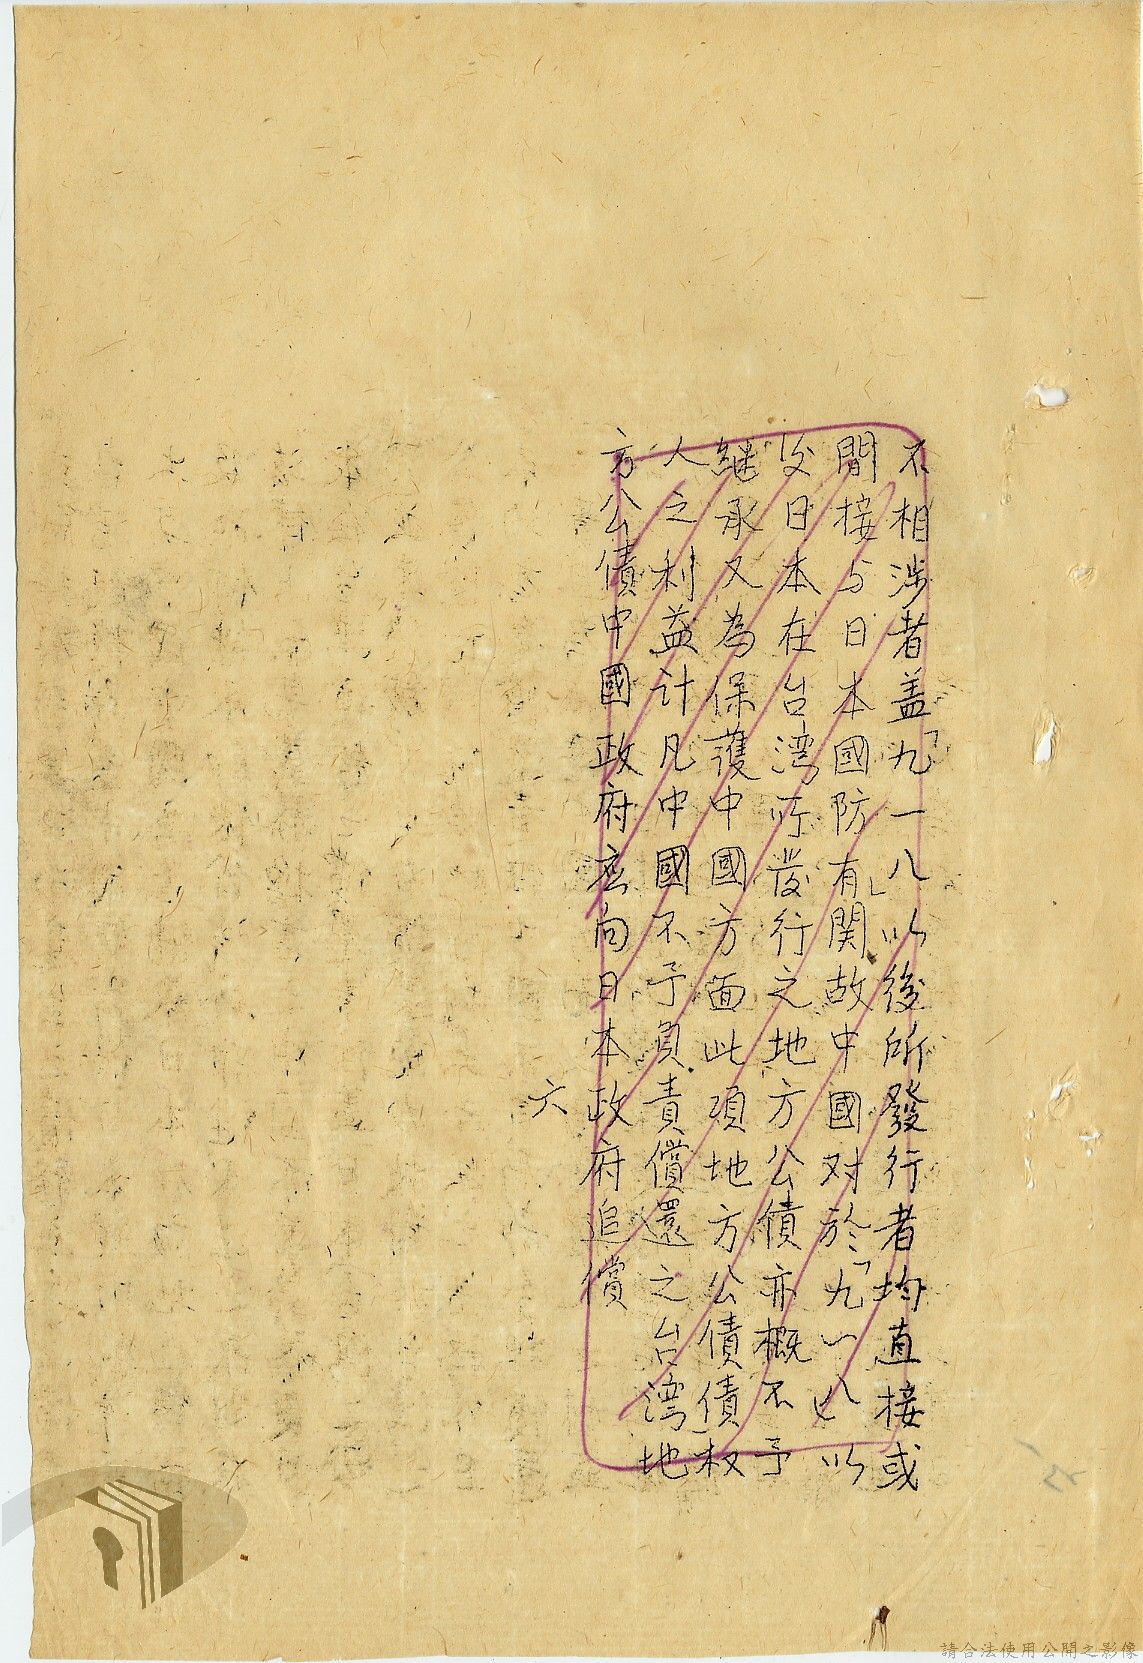 不相涉者盖「九一八」以後所發行者均直接或
間接与日本國防有関故中國对於「九一八」以
後日本在台湾所發行之地方公債亦概不予
継承又為保護中國方面此項地方公債債权
人之利益計凡中國不予負責償還之台湾地
方公債中國政府應向日本政府追償
六
請合法使用公開之影像